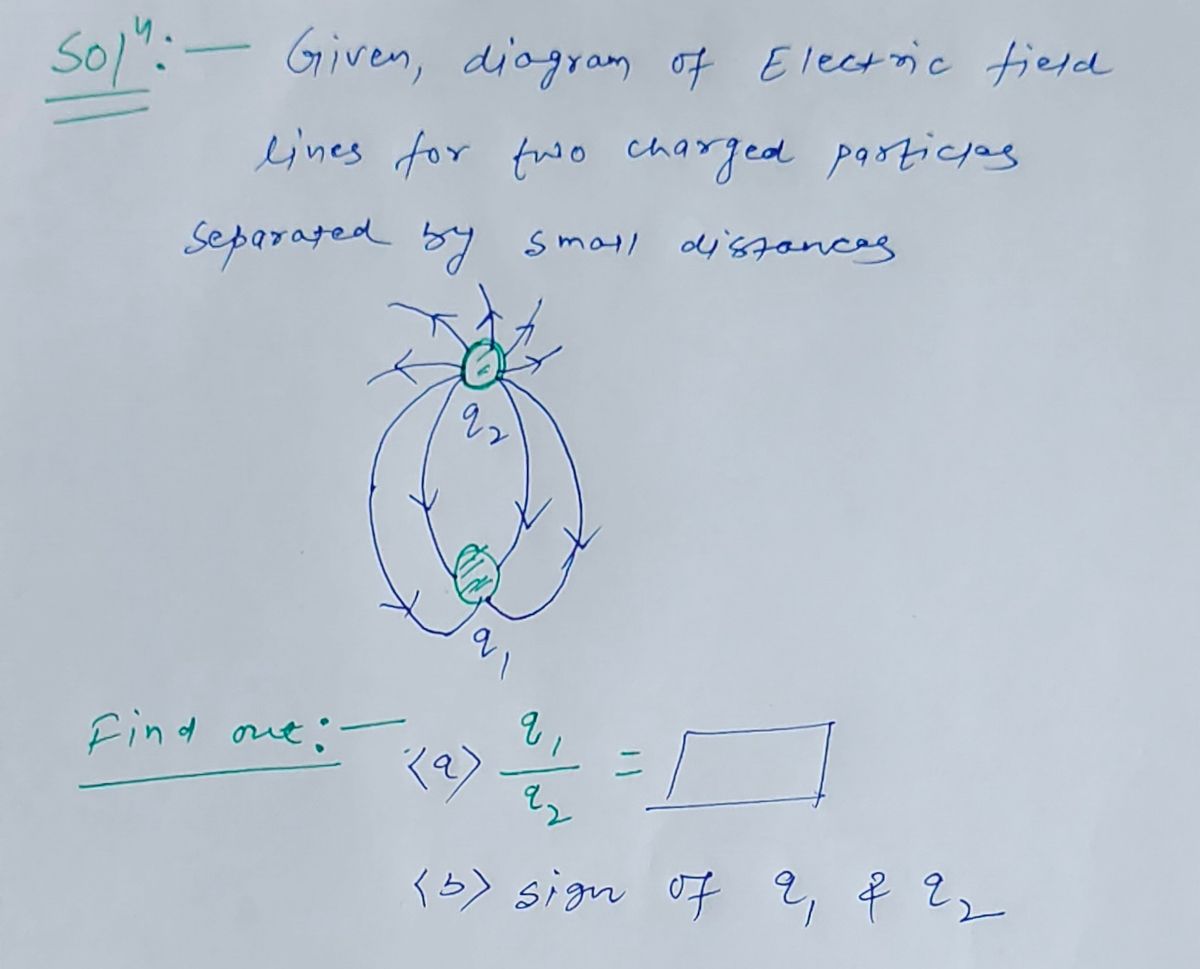 Solⁿ:— Given, diagram of Electric field
lines for two charged particles
separated by small distances
q₂
q₁
Find out:— <a> q₁/q₂ =
<b> sign of q₁ & q₂